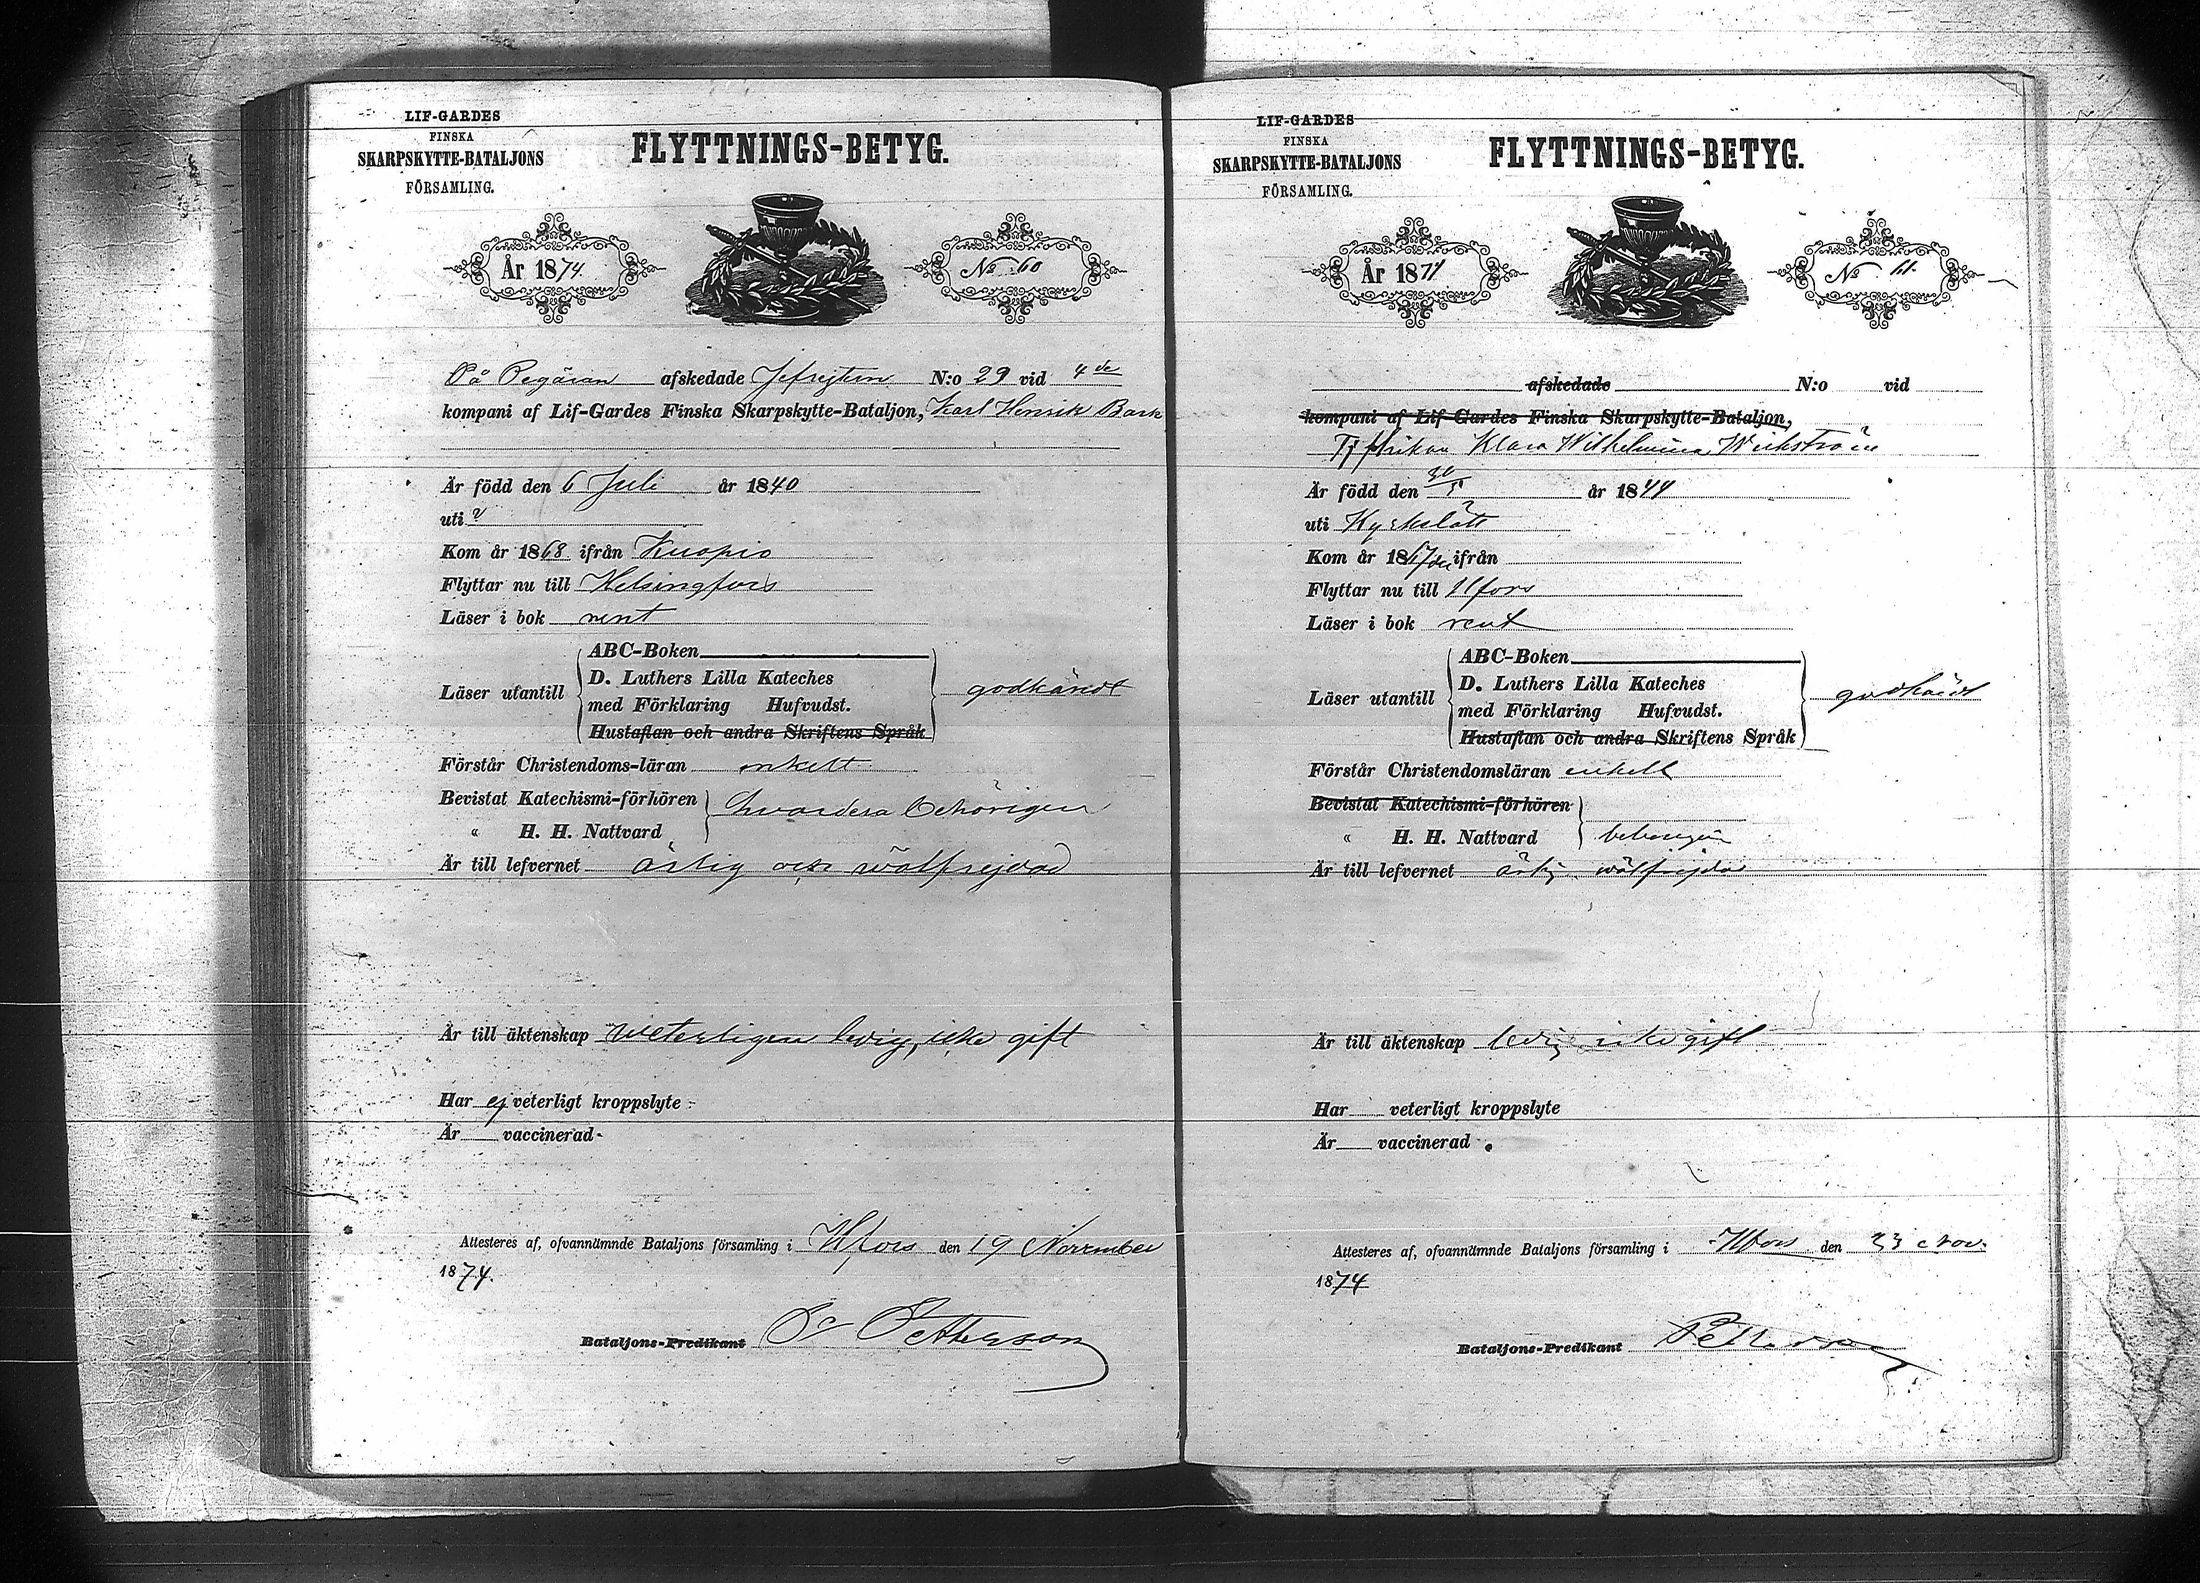 LIF-GARDES
FINSKA
SKARPSKYTTE-BATALJONS
FÖRSAMLING.
FLYTTNINGS-BETYG.
År 1874.
No 60
På Begäran afskedade Jefrejtern N:o 29 vid 4de
kompani af Lif-Gardes Finska Skarpskytte-Bataljon, Karl Henrik Bark
Är född den 6 Juli år 1840
uti ?
Kom år 1868 ifrån Kuopio
Flyttar nu till Helsingfors
Läser i bok rent
ABC-Boken
D. Luthers Lilla Kateches
Läser utantill med Förklaring Hufvudst. godkändt
Hustaflan och andra Skriftens Språk
Förstår Christendoms-läran enkelt
Bevistat Katechismi-förhören
" H. H. Nattvard hvardera behörigen
Är till lefvernet ärlig och wälfrejdad
Är till äktenskap weterligen ledig, icke gift
Har ej veterligt kroppslyte
Är vaccinerad
Attesteres af, ofvannämnde Bataljons församling i Hfors den 19 November
1874.
Bataljons-Predikant Petterson
LIF-GARDES
FINSKA
SKARPSKYTTE-BATALJONS
FÖRSAMLING.
FLYTTNINGS-BETYG.
År 1874
No 61.
afskedade N:o vid
kompani af Lif-Gardes Finska Skarpskytte-Bataljon,
Klara Wilhelmina Wickström
Är född den 30/5 år 1844
uti Kyrkslätt
Kom år 1867 ifrån
Flyttar nu till Hfors
Läser i bok rent
ABC-Boken
D. Luthers Lilla Kateches
Läser utantill med Förklaring Hufvudst. godkändt
Hustaflan och andra Skriftens Språk
Förstår Christendomsläran enkelt
Bevistat Katechismi-förhören
" H. H. Nattvard behörigen
Är till lefvernet ärlig wälfrejdad
Är till äktenskap ledig icke gift
Har veterligt kroppslyte
Är vaccinerad
Attesteres af, ofvannämnde Bataljons församling i Hfors den 23 Nov.
1874
Bataljons-Predikant Petterson